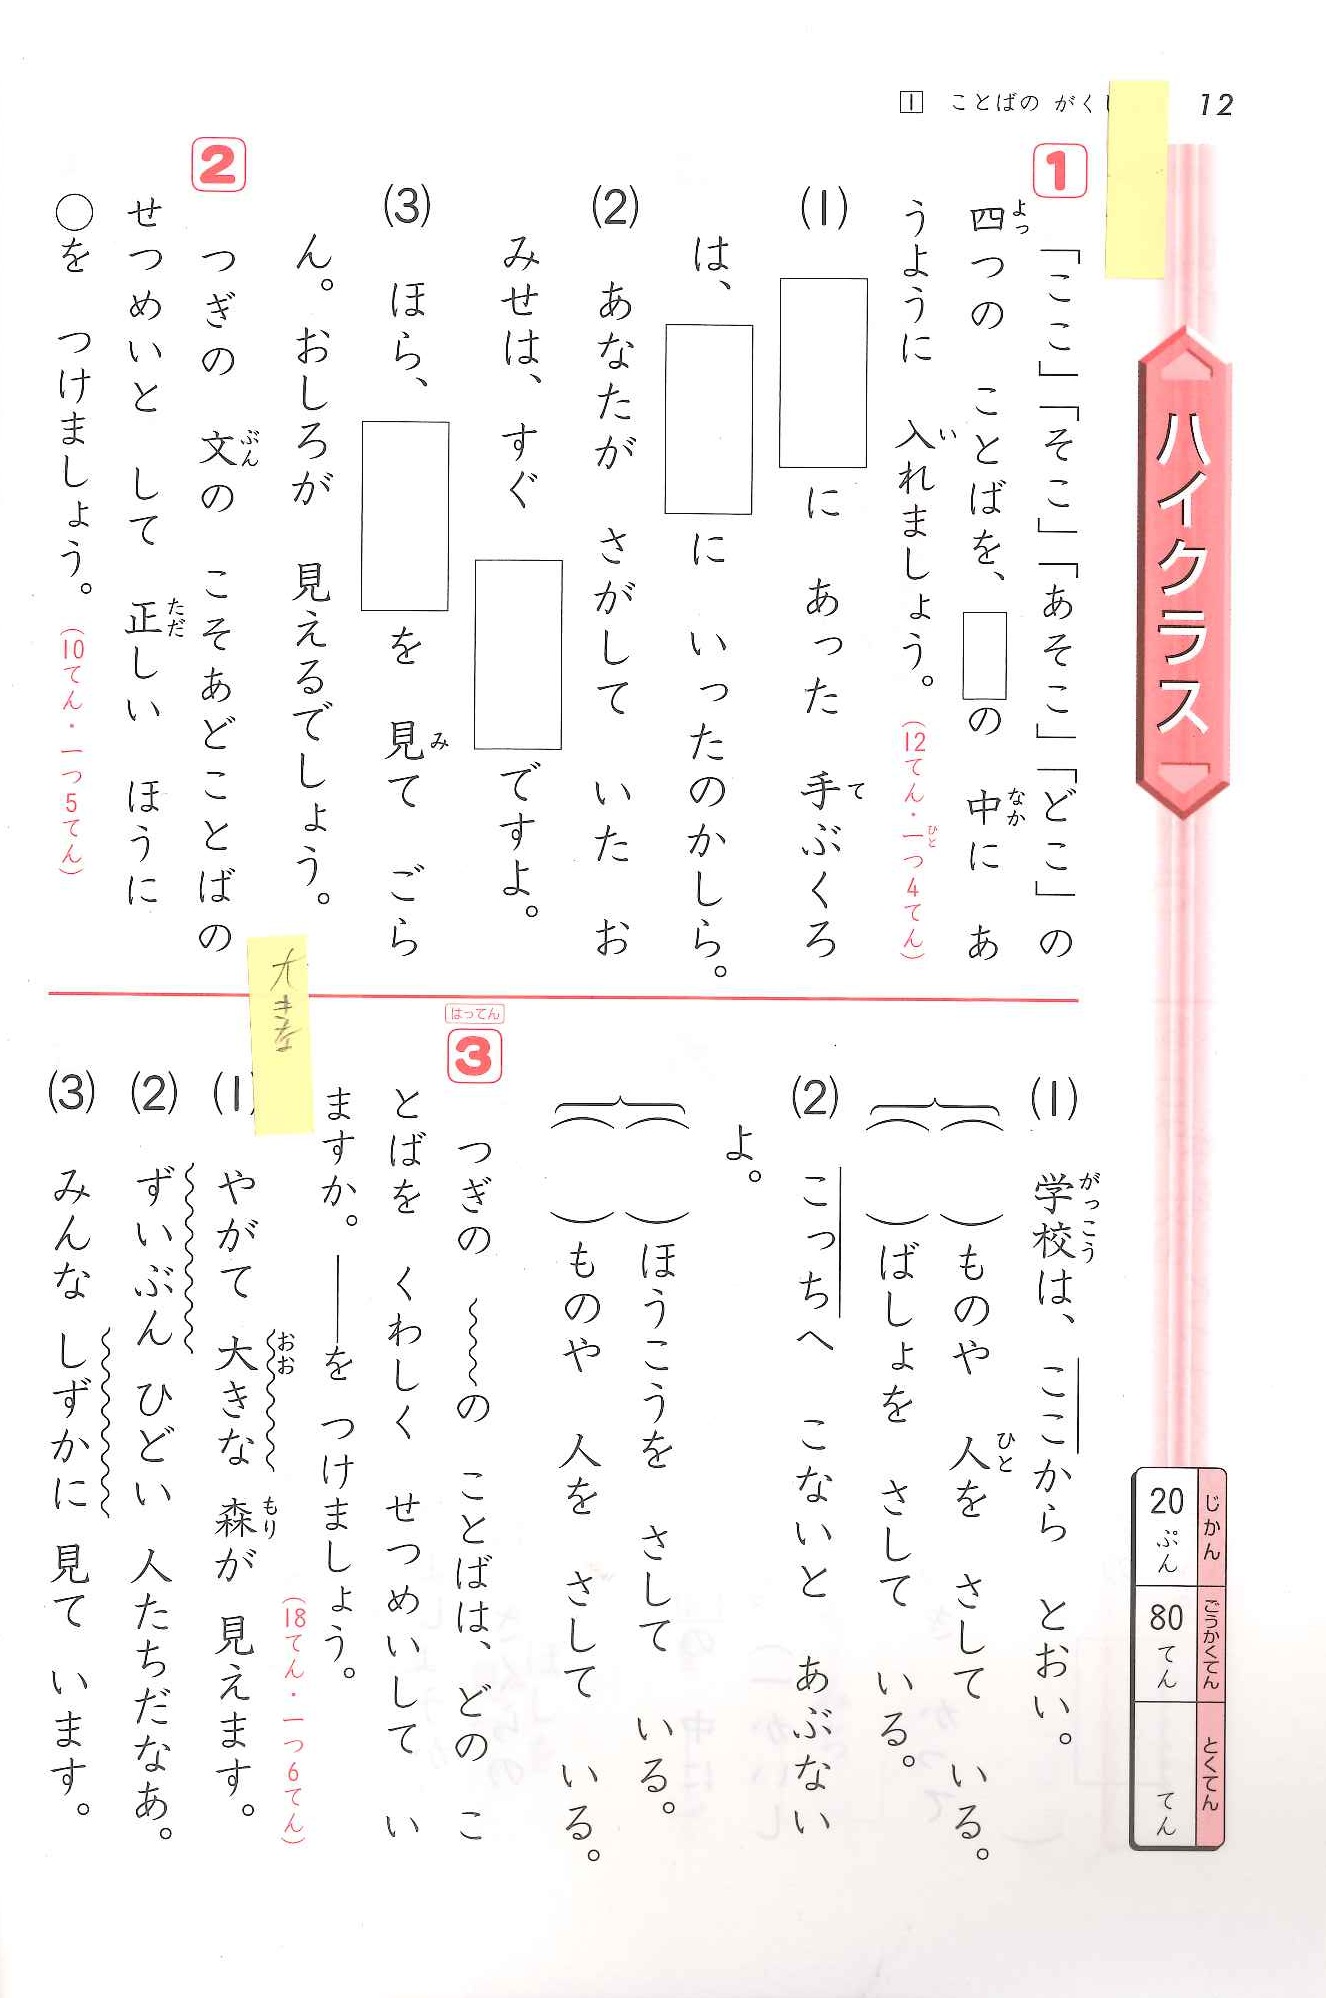 12
1 ことばの がく
ハイクラス
じかん 20ぷん
ごうかくてん 80てん
とくてん てん
1 「ここ」「そこ」「あそこ」「どこ」の
四つの ことばを、□の 中に あ
うように 入れましょう。(12てん・一つ4てん)
(1) □に あった 手ぶくろ
は、□に いったのかしら。
(2) あなたが さがして いた お
みせは、すぐ □ですよ。
(3) ほら、□を 見て ごら
ん。おしろが 見えるでしょう。
2 つぎの 文の こそあどことばの
せつめいと して 正しい ほうに
○を つけましょう。(10てん・一つ5てん)
(1) 学校は、ここから とおい。
( )ものや 人を さして いる。
( )ばしょを さして いる。
(2) こっちへ こないと あぶない
よ。
( )ほうこうを さして いる。
( )ものや 人を さして いる。
はってん
3 つぎの 〜〜の ことばは、どの こ
とばを くわしく せつめいして い
ますか。――を つけましょう。
(18てん・一つ6てん)
大きな
(1) やがて 大きな 森が 見えます。
(2) ずいぶん ひどい 人たちだなあ。
(3) みんな しずかに 見て います。